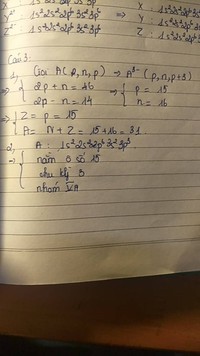 X : 1s²2s²2p⁶3s²
1s²2s²2p⁶3s²3p⁶ => Y :
1s²2s²2p⁶3s²3p⁶ Z : 1s²2s²2p⁶
Câu 3:
1, Gọi A (p, n, p) → A³⁻ (p, n, p+3)
=> { 2p + n = 46 => { p = 15
2p - n = 14 n = 16
=> { Z = p = 15
A = N + Z = 15 + 16 = 31
2, A : 1s²2s²2p⁶3s²3p³
→ { nằm ô số 15
chu kỳ 3
nhóm VA